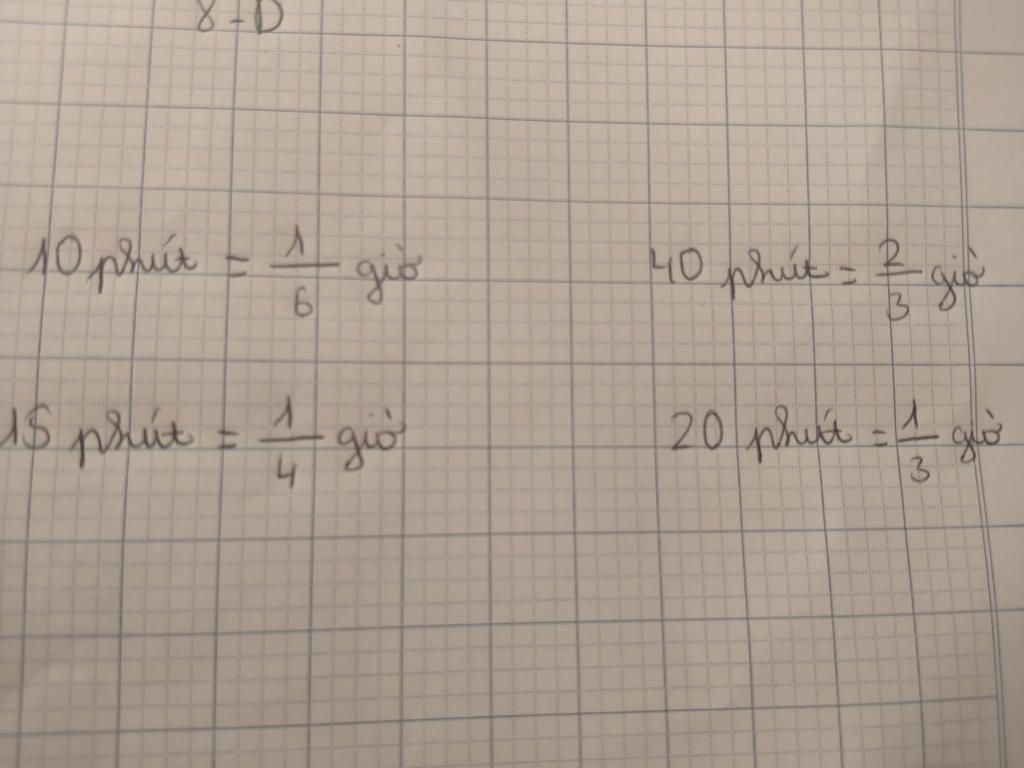 8-D
10 phút = 1/6 giờ
40 phút = 2/3 giờ
15 phút = 1/4 giờ
20 phút = 1/3 giờ